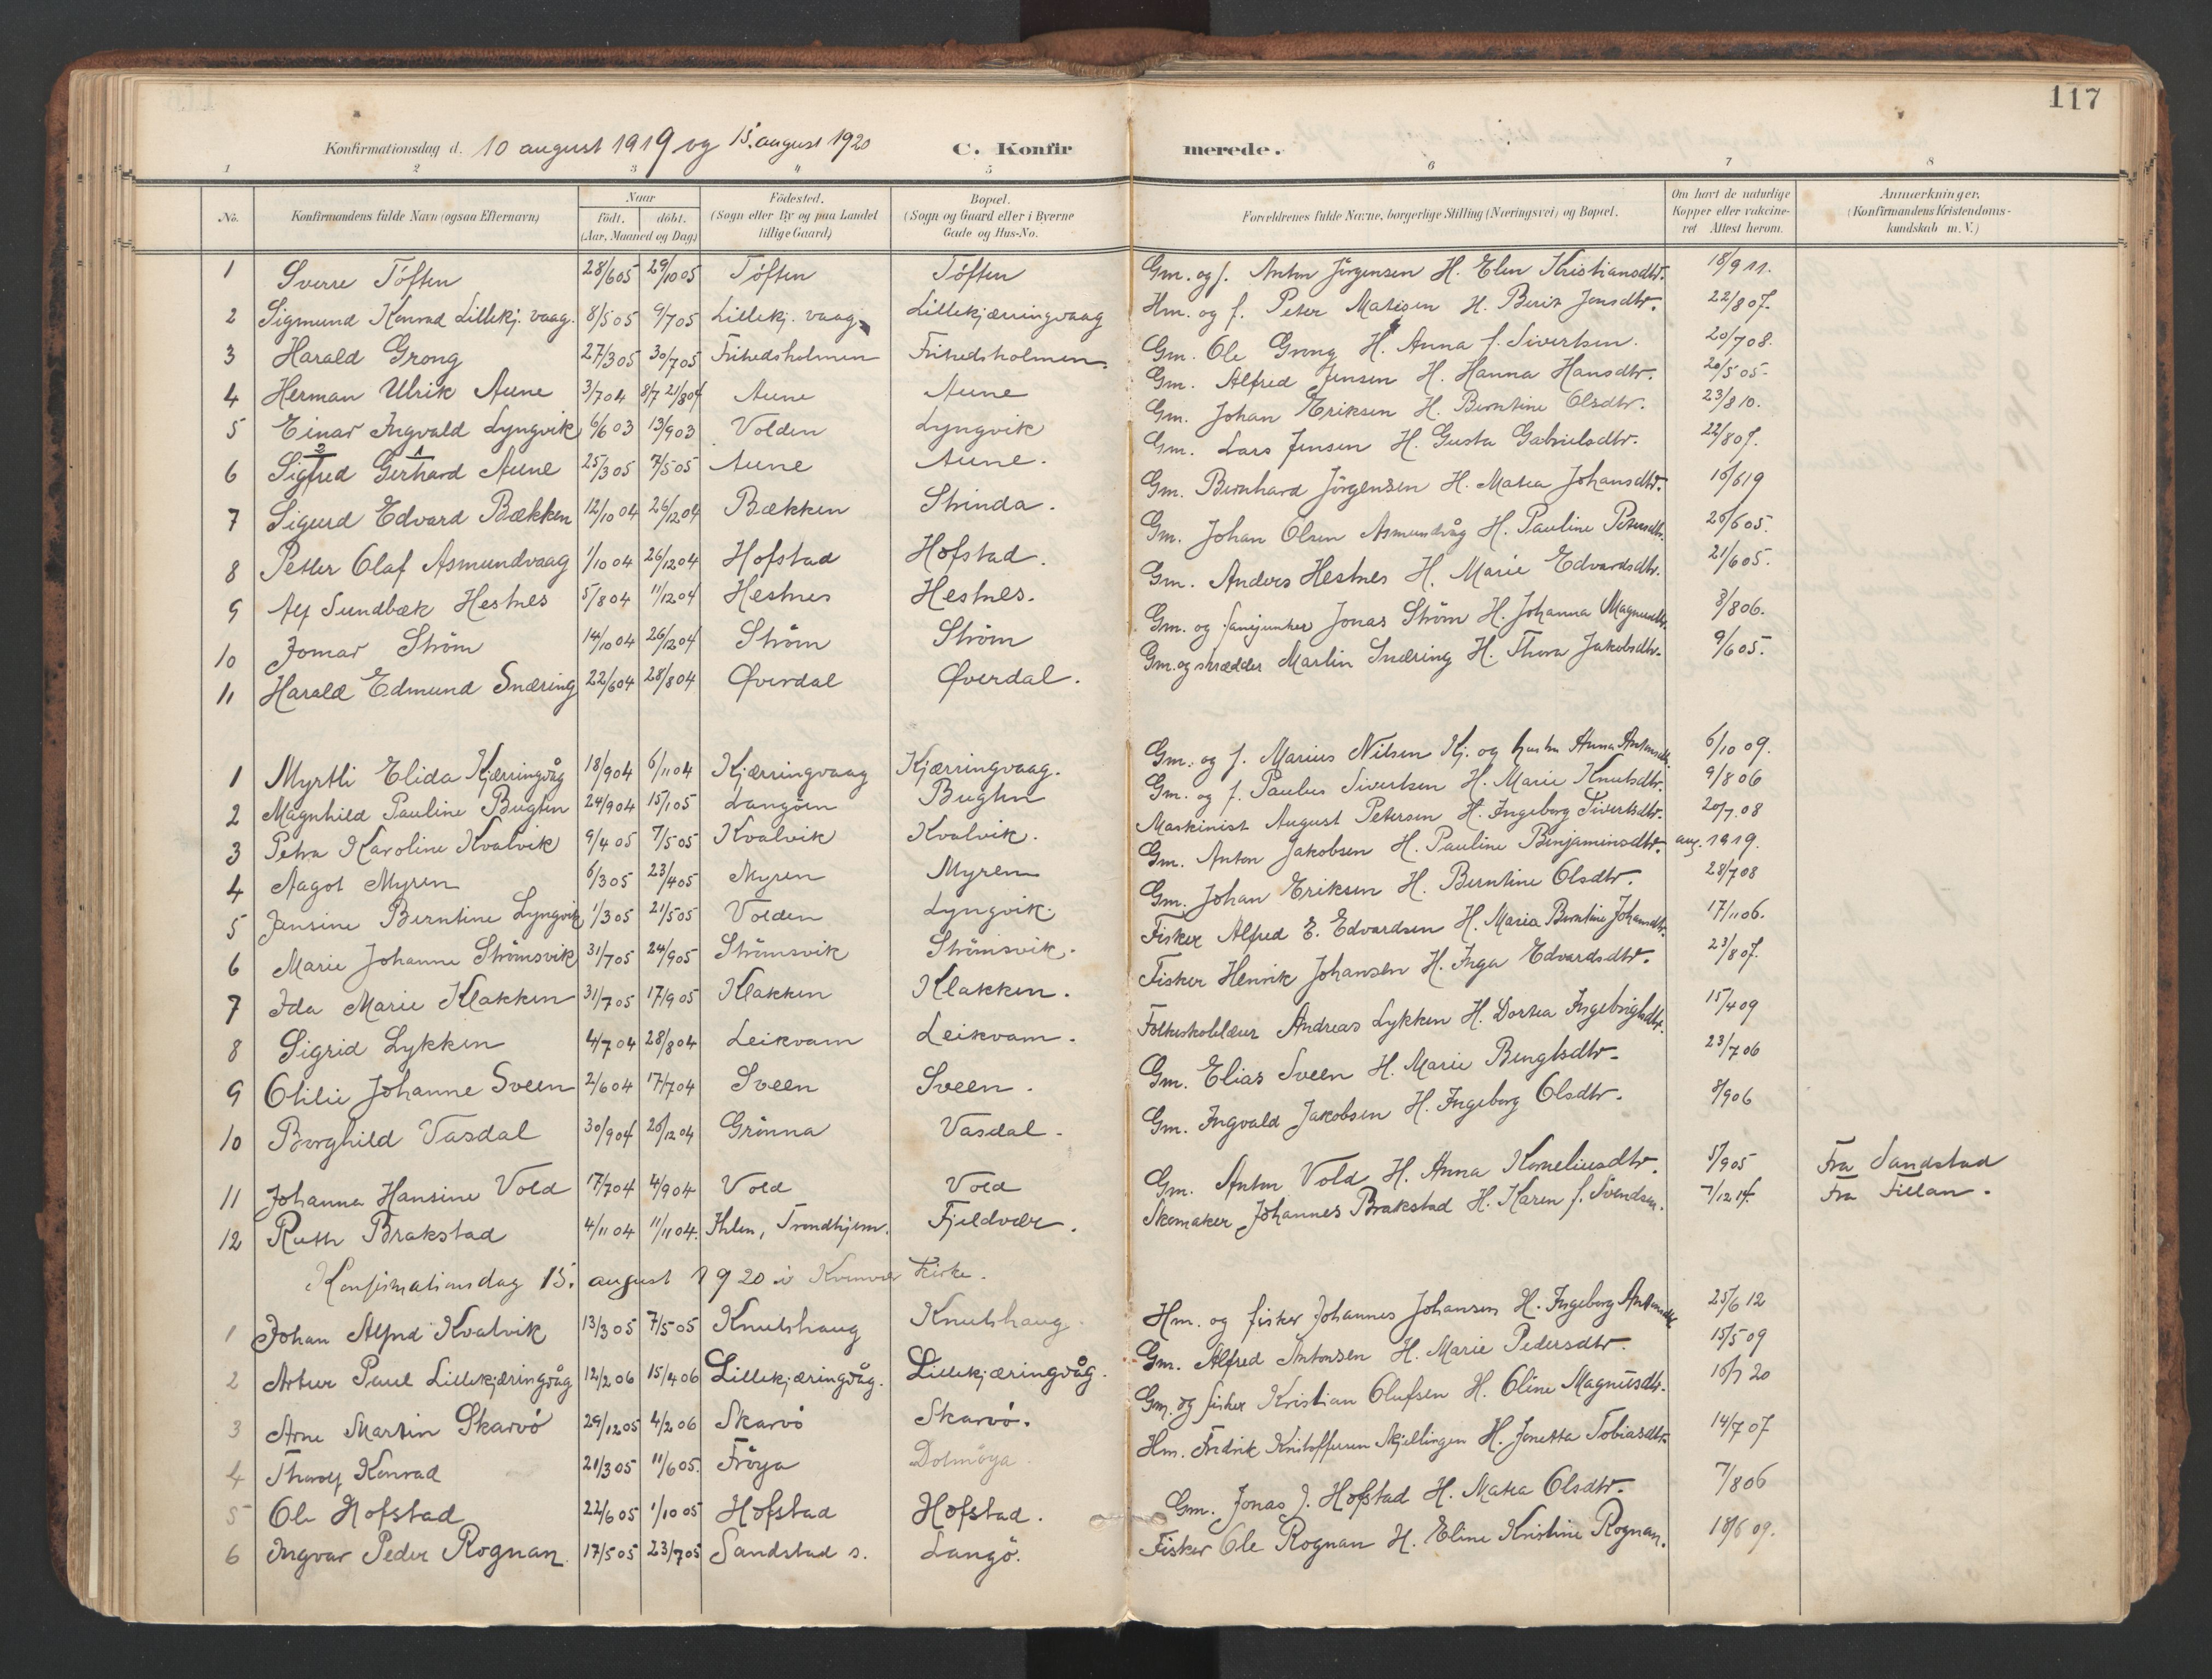 117
Konfirmationsdag d. 10 august 1919 og 15. august 1920 C. Konfirmerede.
1 2 3 4 5 6 7 8
No. Konfirmandens fulde Navn (ogsaa Efternavn) Naar født, døbt. (Aar, Maaned og Dag) Fødested. (Sogn eller By og paa Landet tillige Gaard) Bopæl. (Sogn og Gaard eller i Byerne Gade og Hus-No. Forældrenes fulde Navne, borgerlige Stilling (Næringsvei) og Bopæl. Om havt de naturlige Kopper eller vakcineret Attest herom. Anmærkninger, (Konfirmandens Kristendomskundskab m. V.)
1 Sverre Töften 28/6 05 29/10 05 Töften Töften Gm. og f. Anton Jörgensen H. Elen Kristiansdtr. 18/9 11.
2 Sigmund Konrad Lillekj. vaag. 8/5 05 9/7 05 Lillekj. vaag Lillekjærringvaag Hm. og f. Peter Matisen H. Berit Jonsdtr. 22/8 07.
3 Harald Grong 27/3 05 30/7 05 Frihedsholmen Frihedsholmen. Gm. Ole Grong H. Anna f. Sivertsen. 20/7 08.
4 Herman Ulrik Aune 3/7 04 8/7 21/8 04 Aune Aune Gm. Alfred Jensen H. Hanna Hansdtr. 20/5 05.
5 Einar Ingvald Lyngvik 6/6 03 13/9 03 Volden Lyngvik Gm. Johan Eriksen H. Berntine Olsdtr. 23/8 10.
6 Sigfred Gerhard Aune 25/3 05 7/5 05 Aune Aune. Gm. Lars Jensen H. Gusta Gabrielsdtr. 22/8 07.
7 Sigurd Edvard Bækken 12/10 04 26/12 04 Bækken Strinda. Gm. Bernhard Jörgensen H. Matea Johansdtr. 16/6 19
8 Petter Olaf Asmundvaag 1/10 04 26/12 04 Hofstad Hofstad. Gm. Johan Olsen Asmundvåg H. Pauline Petersdtr. 26/6 05.
9 Alf Sundbæk Hestnes 5/8 04 11/12 04 Hestnes Hestnes. Gm. Anders Hestnes H. Marie Edvardsdtr. 21/6 05.
10 Jomar Ström 14/10 04 26/12 04 Ström Ström Gm. og fanejunker Jonas Ström H. Johanna Magnusdtr. 3/8 06.
11 Harald Edmund Snæring 22/6 04 28/8 04 Øverdal Øverdal. Gm. og skrædder Martin Snæring H. Thora Jakobsdtr. 9/6 05.
1 Myrtli Elida Kjærringvåg 18/9 04 6/11 04 Kjærringvaag Kjærringvaag. Gm. og f. Marius Nilsen Kj. og hustru Anna Antonsdtr. 6/10 09.
2 Magnhild Pauline Bugten 24/9 04 15/1 05 Langöen Bugten Gm. og f. Paulus Sivertsen H. Marie Knutsdtr. 9/8 06
3 Petra Karoline Kvalvik 9/4 05 7/5 05 Kvalvik Kvalvik. Maskinist August Petersen H. Ingeborg Sivertsdtr. 20/7 08
4 Aagot Myren 6/3 05 23/4 05 Myren Myren Gm. Anton Jakobsen H. Pauline Benjaminsdtr. aug. 1919.
5 Jensine Berntine Lyngvik 1/3 05 21/5 05 Volden Lyngvik. Gm. Johan Eriksen H. Berntine Olsdtr. 28/7 08
6 Marie Johanne Strömsvik 31/7 05 24/9 05 Strömsvik Strömsvik. Fisker Alfred E. Edvardsen H. Maria Berntine Johansdtr. 17/11 06.
7 Ida Marie Klakken 31/7 05 17/9 05 Klakken Klakken. Fisker Henrik Johansen H. Inga Edvardsdtr. 23/8 07.
8 Sigrid Lykken 4/7 04 28/8 04 Leikvam Leikvam. Folkeskolelærer Andreas Lykken H. Dortea Ingebrigtsdtr. 15/4 09
9 Otilie Johanne Sveen 2/6 04 17/7 04 Sveen Sveen. Gm. Elias Sveen H. Marie Bengtsdtr. 23/7 06
10 Borghild Vasdal 30/9 04 26/12 04 Grönna Vasdal. Gm. Ingvald Jakobsen H. Ingeborg Olsdtr. 8/9 06
11 Johanna Hansine Vold 17/7 04 4/9 04 Vold Vold Gm. Anton Vold H. Anna Korneliusdtr. 5/9 05 Fra Sandstad
12 Ruth Brakstad 4/11 04 11/11 04. Ihlen, Trondhjem. Fjeldvær. Skomaker Johannes Brakstad H. Karen f. Svendsen. 7/12 14. Fra Fillan.
Konfirmationsdag 15. august 1920 i Kvenvær Kirke.
1 Johan Alfred Kvalvik 13/3 05 7/5 05 Knutshaug Knutshaug. Hm. og fisker Johannes Johansen H. Ingeborg Antonsdtr. 25/6 12
2 Artur Paul Lillekjæringvåg 12/2 06 15/4 06 Lillekjæringvåg. Lillekjæringvåg. Gm. Alfred Antonsen H. Marie Pedersdtr. 15/5 09
3 Arne Martin Skarvö 29/12 05 4/2 06 Skarvö Skarvö. Gm. og fisker Kristian Olufsen H. Oline Magnusdtr. 16/7 20
4 Thorolf Konrad 21/3 05 11/6 05. Fröya Dolmöya. Hm. Fredrik Kristoffersen Skjellingen H. Jonetta Tobiasdtr. 14/7 07
5 Ole Hofstad 22/6 05 1/10 05 Hofstad Hofstad. Gm. Jonas J. Hofstad H. Matea Olsdtr. 7/8 06
6 Ingvar Peder Rognan. 17/5 05 23/7 05 Sandstad s. Langö. Fisker Ole Rognan H. Eline Kristine Rognan. 18/6 09.